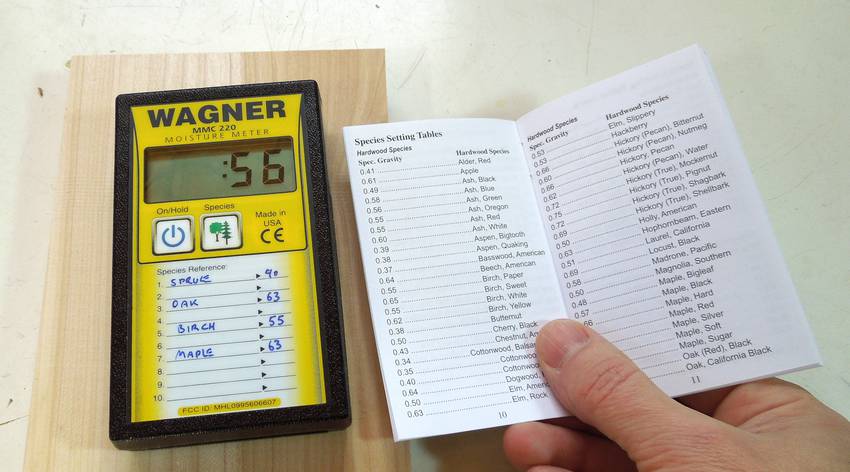 WAGNER
MMC 220
MOISTURE METER
:56
On/Hold Species
Made in
USA
CE
Species Reference:
1. SPRUCE 40
2.
3. OAK 63
4.
5. BIRCH 55
6.
7. MAPLE 63
8.
9.
10.
FCC ID: MHL0995606607
Species Setting Tables
Hardwood Species
Spec. Gravity Hardwood Species
0.41 Alder, Red
0.61 Apple
0.49 Ash, Black
0.58 Ash, Blue
0.56 Ash, Green
0.55 Ash, Oregon
0.55 Ash, Red
0.60 Ash, White
0.39 Aspen, Bigtooth
0.38 Aspen, Quaking
0.37 Basswood, American
0.64 Beech, American
0.55 Birch, Paper
0.65 Birch, Sweet
0.55 Birch, White
0.62 Birch, Yellow
0.38 Butternut
0.50 Cherry, Black
0.43 Chestnut,
0.34 Cottonwood,
0.35 Cottonwood
0.40 Cottonwood
0.64 Dogwood,
0.50 Elm,
0.63 Elm, Rock
10
Hardwood Species
Spec. Gravity Hardwood Species
0.53 Elm, Slippery
0.53 Hackberry
0.66 Hickory (Pecan), Bitternut
0.60 Hickory (Pecan), Nutmeg
0.66 Hickory, Pecan
0.62 Hickory (Pecan), Water
0.72 Hickory (True), Mockernut
0.75 Hickory (True), Pignut
0.72 Hickory (True), Shagbark
0.69 Hickory (True), Shellbark
0.50 Holly, American
0.63 Hophornbeam, Eastern
0.51 Laurel, California
0.69 Locust, Black
0.58 Madrone, Pacific
0.50 Magnolia, Southern
0.48 Maple, Bigleaf
0.57 Maple, Black
66 Maple, Hard
Maple, Red
Maple, Silver
Maple, Soft
Maple, Sugar
Oak (Red), Black
Oak, California Black
11